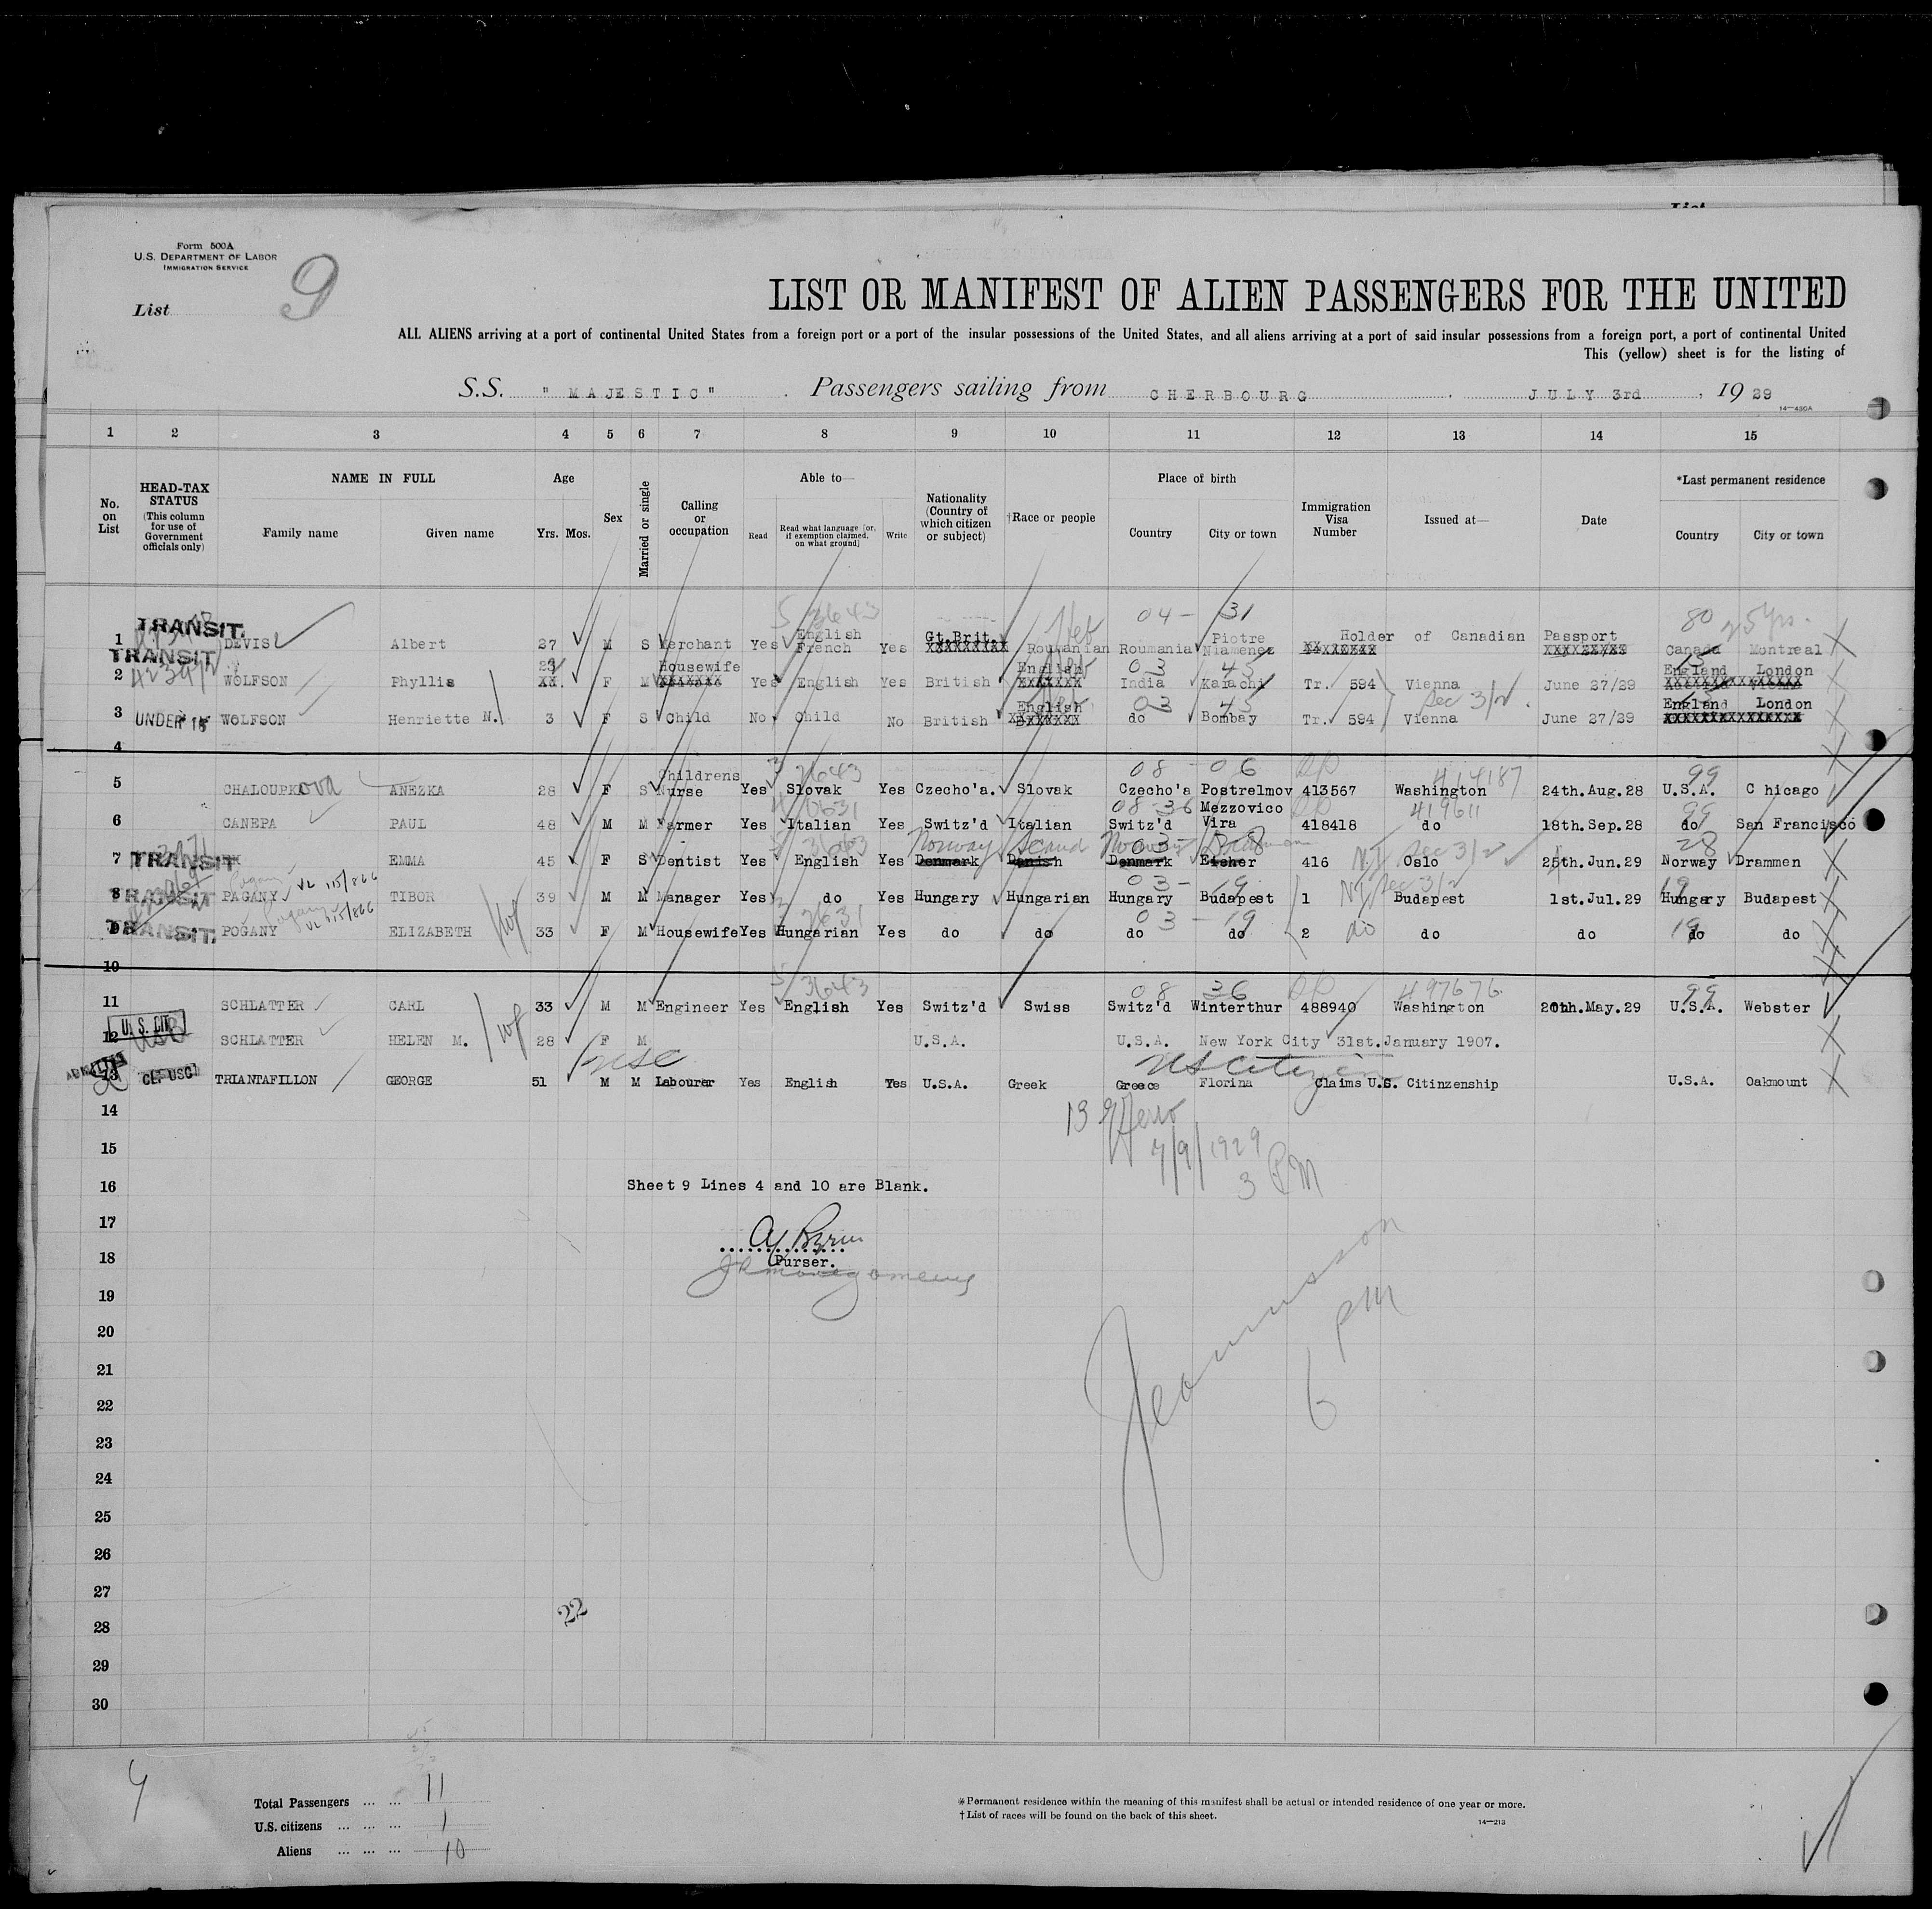 Form 500A
U.S. DEPARTMENT OF LABOR
IMMIGRATION SERVICE
List 9
LIST OR MANIFEST OF ALIEN PASSENGERS FOR THE UNITED
ALL ALIENS arriving at a port of continental United States from a foreign port or a port of the insular possessions of the United States, and all aliens arriving at a port of said insular possessions from a foreign port, a port of continental United
This (yellow) sheet is for the listing of
S.S. "MAJESTIC" Passengers sailing from CHERBOURG, JULY 3rd, 1929
14—480A
1 2 3 4 5 6 7 8 9 10 11 12 13 14 15
No. on List
HEAD-TAX STATUS (This column for use of Government officials only)
NAME IN FULL Family name Given name
Age Yrs. Mos.
Sex
Married or single
Calling or occupation
Able to— Read Read what language [or, if exemption claimed, on what ground] Write
Nationality (Country of which citizen or subject)
†Race or people
Place of birth Country City or town
Immigration Visa Number
Issued at—
Date
*Last permanent residence Country City or town
5 3643 04 - 31 80 25 yrs.
1 TRANSIT. DEVIS Albert 27 M S Merchant Yes English French Yes Gt.Brit. Roumanian Heb Roumania Piotre Niamenez Holder of Canadian Passport Canada Montreal
03 43 15
2 TRANSIT WOLFSON Phyllis 23 F M Housewife Yes English Yes British English Heb India Karachi Tr. 594 Vienna June 27/29 England London
03 43 Sec 3/2
3 UNDER 16 WOLFSON Henriette N. 3 F S Child No Child No British English do Bombay Tr. 594 Vienna June 27/29 England London
4
3 2643 08 - 06 414187 99
5 CHALOUPKOVA ANEZKA 28 F S Childrens Nurse Yes Slovak Yes Czecho'a. Slovak Czecho'a Postrelmov 413567 Washington 24th.Aug.28 U.S.A. Chicago
4 0631 08-36 419611 99
6 CANEPA PAUL 48 M M Farmer Yes Italian Yes Switz'd Italian Switz'd Mezzovico Vira 418418 do 18th.Sep.28 do San Francisco
Norway Scand Norway Sec 3/2 28
7 TRANSIT EMMA 45 F S Dentist Yes English Yes Denmark Danish Denmark Eisher 416 Oslo 25th.Jun.29 Norway Drammen
Pogany VL 115/866 03 - 19 Sec 3/2 19
8 TRANSIT PAGANY TIBOR 39 M M Manager Yes do Yes Hungary Hungarian Hungary Budapest 1 Budapest 1st.Jul.29 Hungary Budapest
Pogany VL 315/866 2631 03 - 19 do 19
9 TRANSIT. POGANY ELIZABETH 33 F M Housewife Yes Hungarian Yes do do do do 2 do do do do
10
5 3643 08 36 497676 99
11 SCHLATTER CARL 33 M M Engineer Yes English Yes Switz'd Swiss Switz'd Winterthur 488940 Washington 20th.May.29 U.S.A. Webster
12 U.S. CIT SCHLATTER HELEN M. 28 F M U.S.A. U.S.A. New York City 31st.January 1907.
USC US Citizen
13 ADMITTED TRIANTAFILLON GEORGE 51 M M Labourer Yes English Yes U.S.A. Greek Greece Florina Claims U.S. Citinzenship U.S.A. Oakmount
14
13
7/9/1929
15
3 PM
16 Sheet 9 Lines 4 and 10 are Blank.
17
18 Purser.
19
20
6 PM
21
22
23
24
25
26
27
22
28
29
30
Total Passengers ... ... 11
U.S. citizens ... ... ... 1
Aliens ... ... ... 10
*Permanent residence within the meaning of this manifest shall be actual or intended residence of one year or more.
†List of races will be found on the back of this sheet.
14—213